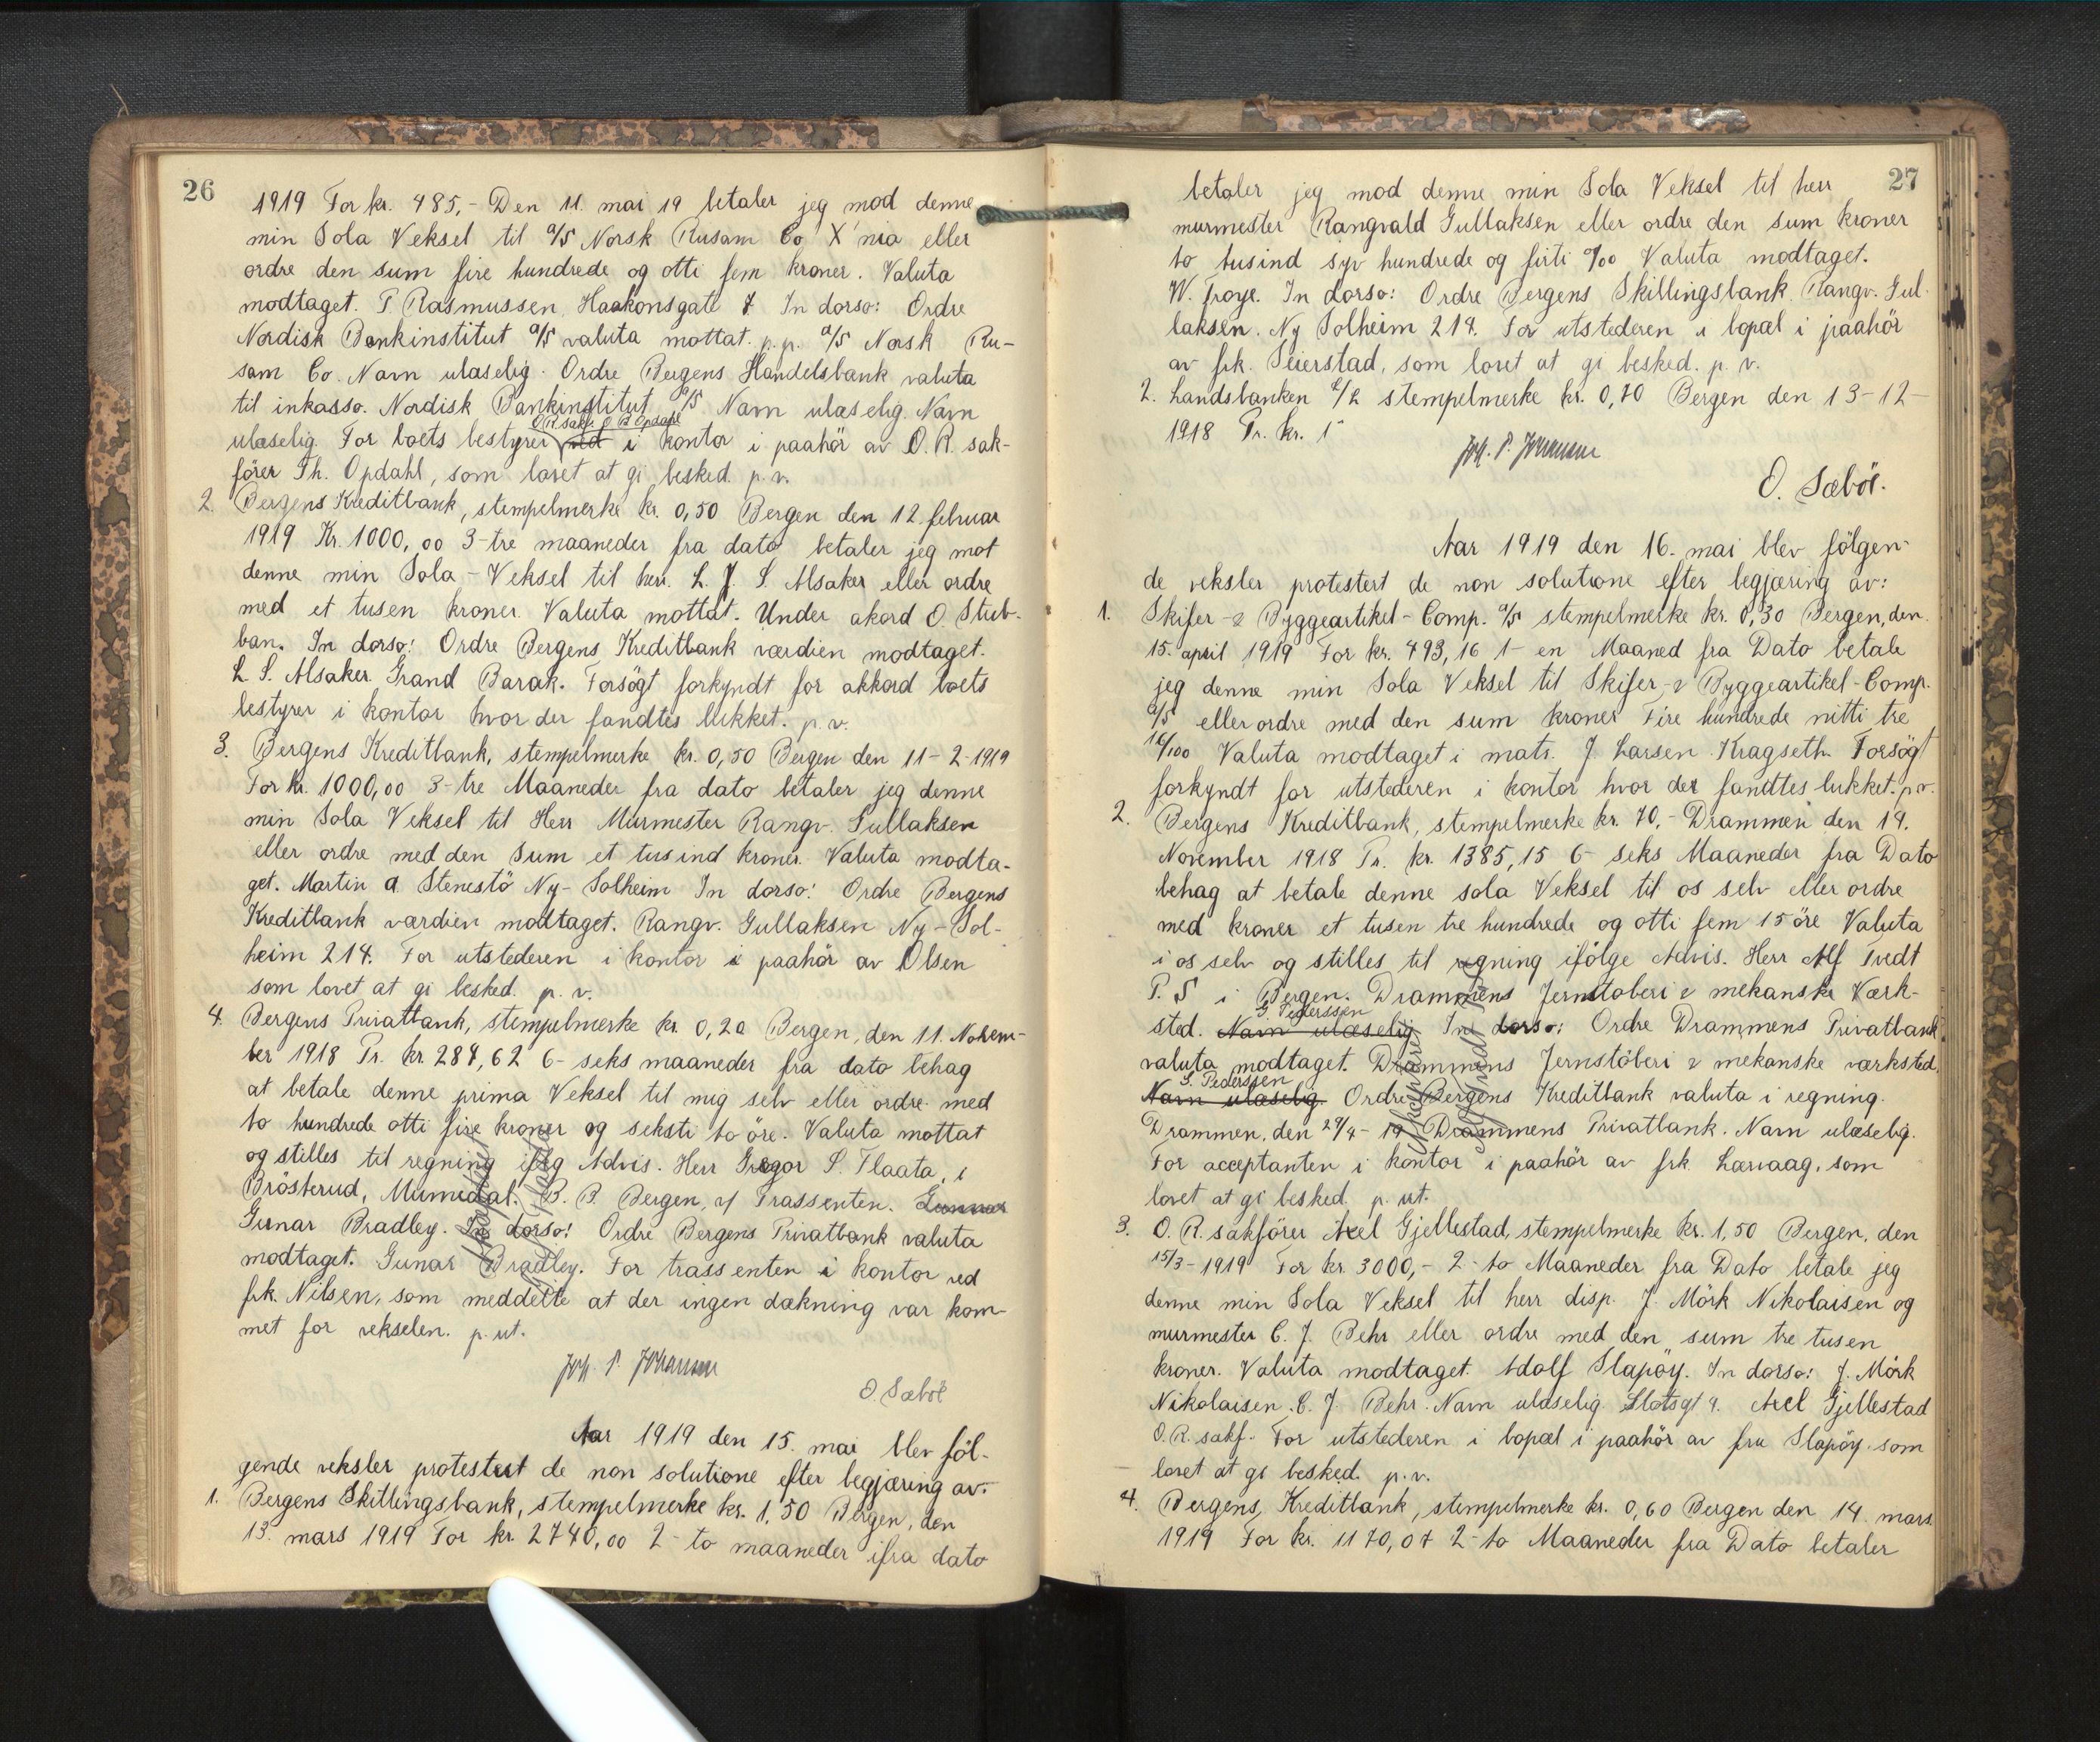 26
1919 For kr. 485,- Den 11. mai 19 betaler jeg mod denne
min Sola Veksel til a/s Norsk Rusam Co X'nia eller
ordre den sum fire hundrede og otti fem kroner. Valuta
modtaget. P Rasmussen, Haakonsgate 7 In dorso: Ordre
Nordisk Bankinstitut a/s valuta mottat. p.p. a/s Norsk Ru-
sam Co. Navn ulæselig. Ordre Bergens Handelsbank valuta
til inkasso. Nordisk Bankinstitut a/s Navn ulæselig. Navn
O.R.sakf. O B Opdahl
ulæselig. For boets bestyrer ved i kontor i paahör av O. R. sak-
förer Th. Opdahl, som lovet at gi besked. p. v.
2. Bergens Kreditbank, stempelmerke kr. 0,50 Bergen den 12. februar
1919 Kr. 1000,00 3-tre maaneder fra dato betaler jeg mot
denne min Sola-Veksel til herr. L. J. S. Alsaker eller ordre
med et tusen kroner. Valuta mottat. Under akord O. Stub-
ban. In dorso: Ordre Bergens Kreditbank værdien modtaget.
L. S. Alsaker. Grand Barak. Forsögt forkyndt for akkord boets
bestyrer i kontor hvor der fandtes lukket. p. v.
3. Bergens Kreditbank, stempelmerke kr. 0,50 Bergen den 11-2-1919
For kr. 1000,00 3-tre Maaneder fra dato betaler jeg denne
min Sola Veksel til Herr Murmester Rangv. Gullaksen
eller ordre med den sum et tusind kroner. Valuta modta-
get. Martin A Stenestö Ny-Solheim In dorso: Ordre Bergens
Kreditbank værdien modtaget. Rangv. Gullaksen Ny-Sol-
heim 214. For utstederen i kontor i paahör av Olsen
som lovet at gi besked. p. v.
4. Bergens Privatbank, stempelmerke kr. 0,20 Bergen, den 11. Novem-
ber 1918 Pr. kr. 284,62 6- seks maaneder fra dato behag
at betale denne prima Veksel til mig selv eller ordre med
to hundrede otti fire kroner og seksti to öre. Valuta mottat
og stilles til regning ifölg Advis. Herr Gregor S. Flaata, i
Brösterud, Numedal. B. B. Bergen, a/ Trassenten. Gunnar
Gunar Bradley. In dorso: Ordre Bergens Privatbank valuta
modtaget. Gunar Bradley. For trassenten i kontor ved
frk. Nilsen, som meddelte at der ingen dækning var kom-
met for vekselen. p. ut.
Joh. P. Johansen
O. Sæböe
Aar 1919 den 15. mai blev föl-
gende veksler protestert de non solutione efter begjæring av:
1. Bergens Skillingsbank, stempelmerke kr. 1,50 Bergen, den
13. mars 1919 For kr. 2740,00 2- to maaneder ifra dato
27
betaler jeg mod denne min Sola Veksel til herr
murmester Rangvald Gullaksen eller ordre den sum kroner
to tusind syv hundrede og firti 0/00 Valuta modtaget.
W. Troye. In dorso: Ordre Bergens Skillingsbank. Rangv. Gul-
laksen. Ny Solheim 214. For utstederen i bopæl i paahör
av frk. Seierstad, som lovet at gi besked. p. v.
2. Landsbanken a/s stempelmerke kr. 0,70 Bergen den 13-12-
1918 Pr. kr. 1
Joh. P. Johansen
O. Sæböe.
Aar 1919 den 16. mai blev fölgen-
de veksler protestert de non solutione efter begjæring av:
1. Skifer- & Byggeartikel-Comp. a/s stempelmerke kr. 0,30 Bergen, den
15. april 1919 For kr. 493,16 1- en Maaned fra Dato betale
jeg denne min Sola Veksel til Skifer- & Byggeartikel-Comp.
a/s eller ordre med den sum kroner Fire hundrede nitti tre
16/100 Valuta modtaget i matr. J. Larsen Kragseth. Forsögt
forkyndt for utstederen i kontor hvor der fandtes lukket. p.v.
2. Bergens Kreditbank, stempelmerke kr. 70,- Drammen den 19.
November 1918 Pr. kr. 1385,15 6- seks Maaneder fra Dato
behag at betale denne sola Veksel til os selv eller ordre
med kroner et tusen tre hundrede og otti fem 15 öre Valuta
i os selv og stilles til regning ifölge Advis. Herr Alf Tvedt
P. S i Bergen. Drammens Jernstøberi & mekanske Værk-
G. Pederssen
sted. Navn ulæselig In dorso: Ordre Drammens Privatbank
valuta modtaget. Drammens Jernstöberi & mekanske værksted.
G. Pederssen
Navn ulæselig. Ordre Bergens Kreditbank valuta i regning.
Drammen, den 29/4-19 Drammens Privatbank. Navn ulæselig.
For acceptanten i kontor i paahör av frk. Lærvaag, som
lovet at gi besked. p. ut.
3. O. R. sakförer Axel Gjellestad, stempelmerke kr. 1,50 Bergen, den
15/3-1919 For kr. 3000,- 2- to Maaneder fra Dato betale jeg
denne min Sola Veksel til herr disp. J. Mörk Nikolaisen og
murmester C. J. Behr eller ordre med den sum tre tusen
kroner. Valuta modtaget. Adolf Slapöy. In dorso: J. Mörk
Nikolaisen. C. J. Behr. Navn ulæselig. Slotsgt 4. Axel Gjellestad
O.R. sakf. For utstederen i bopæl i paahör av fru Slapöy som
lovet at gi besked. p. v.
4. Bergens Kreditbank, stempelmerke kr. 0,60 Bergen den 14. mars
1919 For kr. 1170,07 2- to Maaneder fra Dato betaler